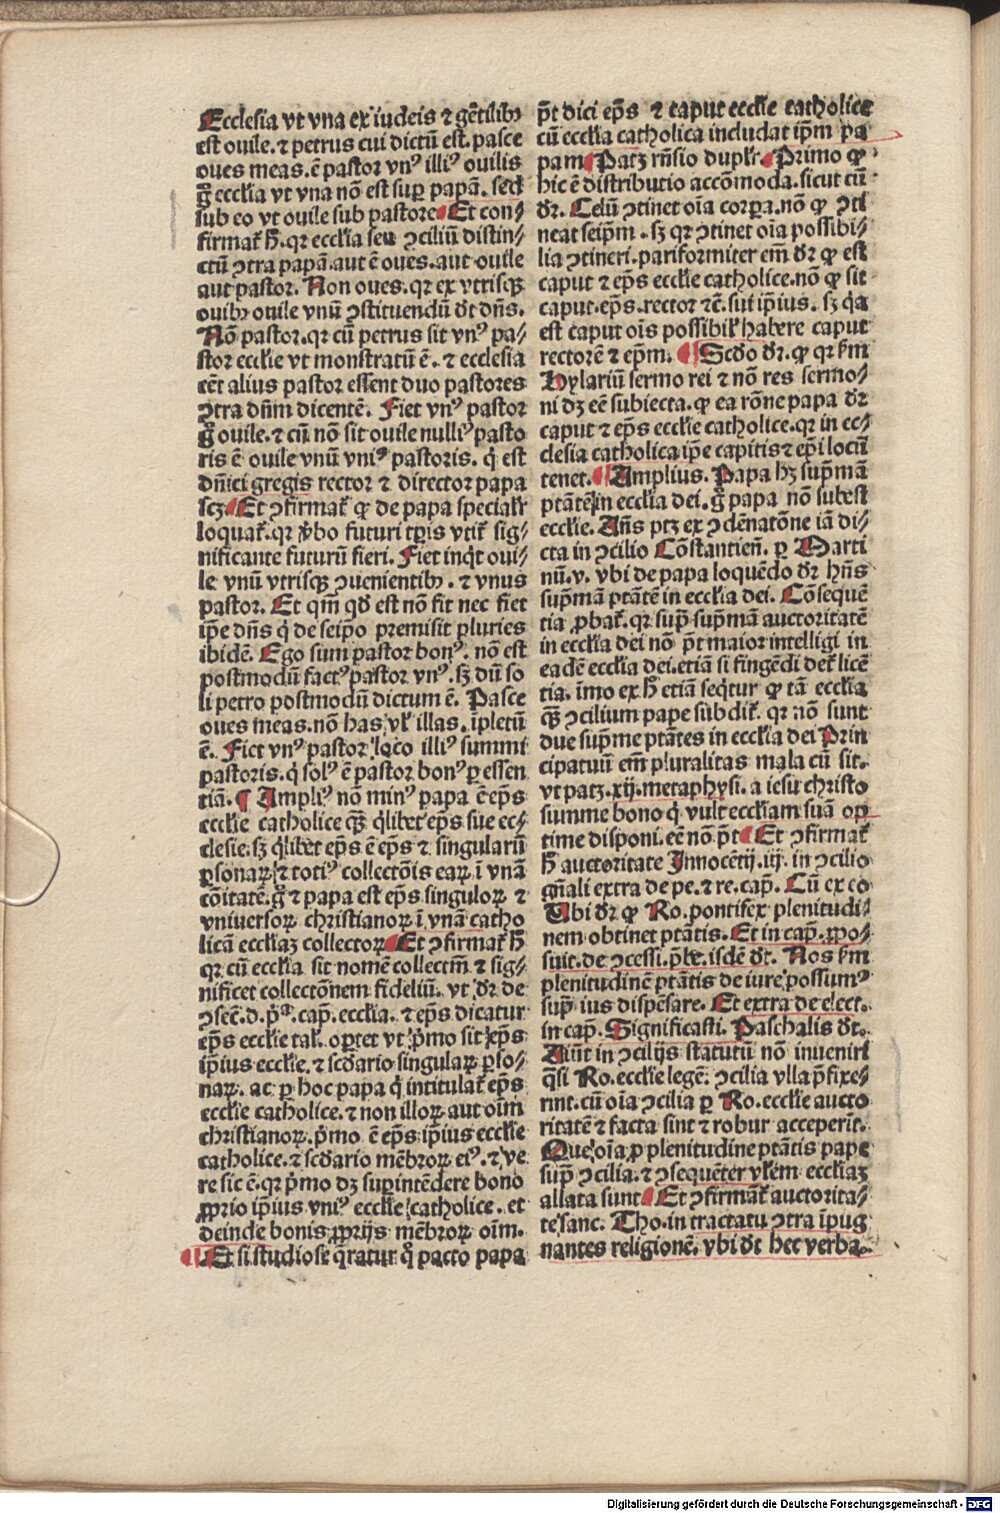 Ecclesia vt vna ex iudeis ⁊ gētilibꝫ
est ouile.⁊ petrus cui dictū est.pasce
oues meas.ē pastor vnꝰ illiꝰ ouilis
g̊ eccľia vt vna nō est suꝑ papā. sed
sub eo vt ouile sub pastore Et con⸗
firmat̄ h̄.qꝛ eccľia seu ꝯciliū distin⸗
ctū ꝯtra papā.aut ē oues.aut ouile
aut pastor. Non oues.qꝛ ex vtrisqꝫ
ouibꝫ ouile vnū ꝯstituendū dt̄ dn̄s.
Nō pastor.qꝛ cū petrus sit vnꝰ pa⸗
stor eccľie vt monstratū ē.⁊ ecclesia
eēt alius pastor essent duo pastores
ꝯtra dn̄m dicentē. Fiet vnꝰ pastor
g̊ ouile.⁊ cū nō sit ouile nulliꝰ pasto
ris ē ouile vnū vniꝰ pastoris. q̇ est
dn̄ici gregis rector ⁊ director papa
scꝫ Et ꝯfirmat̄ ꝙ de papa specialr̄
loquat̄.qꝛ v̄bo futuri tꝑis vtit̄ sig⸗
nificante futurū fieri. Fiet inq̇t oui⸗
le vnū vtrisqꝫ ꝯuenientibꝫ.⁊ vnus
pastor. Et qm̄ qd̄ est nō fit nec fiet
ip̄e dn̄s q̇ de seip̄o premisit pluries
ibidē. Ego sum pastor bonꝰ. nō est
postmodū factꝰ pastor vnꝰ.sꝫ dū so
li petro postmodū dictum ē. Pasce
oues meas.nō has vľ illas.īpletū
ē. Fiet vnꝰ pastor loco illiꝰ summi
pastoris.q̇ solꝰ ē pastor bonꝰ ꝑ essen
tiā. Ampliꝰ nō minꝰ papa ē ep̄s
eccľie catholice qꝫ̄ q̇libet ep̄s sue ec⸗
clesie.sꝫ q̇libet ep̄s ē ep̄s ⁊ singulariū
ꝑsonaꝝ ⁊ totiꝰ collectōis eaꝝ ī vnā
cōitatē.g̊ ⁊ papa est ep̄s singuloꝝ ⁊
vniuersoꝝ christianoꝝ ī vnā catho
licā eccľiaꝫ collectoꝝ Et ꝯfirmat̄ h̄
qꝛ cū eccľia sit nomē collectm̄ ⁊ sig⸗
nificet collectōnem fideliū. vt dr̄ de
ꝯsec̄.d.p̄ª.cap̄.eccľia.⁊ ep̄s dicatur
ep̄s eccľie tal̄. oꝑtet vt p̄mo sit ep̄s
ip̄ius eccľie.⁊ scd̄ario singulaꝝ ꝑso⸗
naꝝ. ac ꝑ hoc papa q̇ intitulat̄ ep̄s
eccľie catholice.⁊ non illoꝝ aut oīm
christianoꝝ.p̄mo ē ep̄s ip̄ius eccľie
catholice.⁊ scd̄ario mēbroꝝ eiꝰ.⁊ ve
re sic ē.qꝛ p̄mo dꝫ suꝑintēdere bono
ꝓprio ip̄ius vniꝰ eccľie catholice.et
deinde bonis ꝓprijs mēbroꝝ oīm.
Et si studiose q̄ratur q̊ pacto papa
p̄t dici ep̄s ⁊ caput eccľie catholice
cū eccľia catholica includat ip̄m pa
pam Patꝫ rn̄sio duplr̄. Primo ꝙ
hic ē distributio accōmoda.sicut cū
dr̄. Celū ꝯtinet oīa corꝑa.nō ꝙ ꝯti
neat seip̄m.sꝫ qꝛ ꝯtinet oīa possibi⸗
lia ꝯtineri.pariformiter em̄ dr̄ ꝙ est
caput ⁊ ep̄s eccľie catholice.nō ꝙ sit
caput.ep̄s.rector ⁊c̄.sui ip̄ius.sꝫ q̇a
est caput oīs possibil̄ habere caput
rectorē ⁊ ep̄m. Scd̄o dr̄.ꝙ qꝛ ẜm
Hylariū sermo rei ⁊ nō res sermo⸗
ni dꝫ eē subiecta.ꝙ ea rōne papa dr̄
caput ⁊ ep̄s eccľie catholice.qꝛ in ec⸗
clesia catholica ip̄e capitis ⁊ ep̄i locū
tenet. Amplius. Papa hꝫ sup̄mā
ptātē in eccľia dei.g̊ papa nō subest
eccľie. Añs ptꝫ ex ꝯdēnatōne iā di⸗
cta in ꝯcilio Cōstantien̄. ꝑ Marti
nū.v. vbi de papa loquēdo dr̄ hn̄s
sup̄mā ptātē in eccľia dei. Cōsequē
tia ꝓbat̄.qꝛ sup̄ sup̄mā auctoritatē
in eccľia dei nō p̄t maior intelligi in
eadē eccľia dei.etiā si fingēdi det̄ licē
tia. imo ex h̄ etiā seq̇tur ꝙ tā eccľia
qꝫ̄ ꝯcilium pape subdit̄. qꝛ nō sunt
due sup̄me ptātes in eccľia dei Prin
cipatuū em̄ pluralitas mala cū sit.
vt patꝫ.xij.metaphysi. a iesu christo
summe bono q̇ vult eccľiam suā op
time disponi.eē nō p̄t Et ꝯfirmat̄
h̄ auctoritate Innocētij.iij.in ꝯcilio
gn̄ali extra de pe.⁊ re.cap̄. Cū ex eo
Vbi dr̄ ꝙ Ro.pontifex plenitudi⸗
nem obtinet ptātis. Et in cap̄.ꝓpo⸗
suit.de ꝯcessi.p̄be.isdē dt̄. Nos ẜm
plenitudinē ptātis de iure possumꝰ
sup̄ ius dispēsare. Et extra de elect.
in cap. Significasti. Paschalis dt̄.
Aiūt in ꝯcilijs statutū nō inueniri
q̄si Ro.eccľie legē. ꝯcilia vlla p̄fixe⸗
rint.cū oīa ꝯcilia ꝑ Ro.eccľie aucto
ritatē ⁊ facta sint ⁊ robur acceperīt.
Que oīa ꝓ plenitudine ptātis pape
sup̄ ꝯcilia.⁊ ꝯsequēter vľem eccľiaꝫ
allata sunt Et ꝯfirmāt̄ auctorita⸗
te sanc. Tho.in tractatu ꝯtra īpug
nantes religionē.vbi dt̄ hec verba.
Digitalisierung gefördert durch die Deutsche Forschungsgemeinschaft - DFG